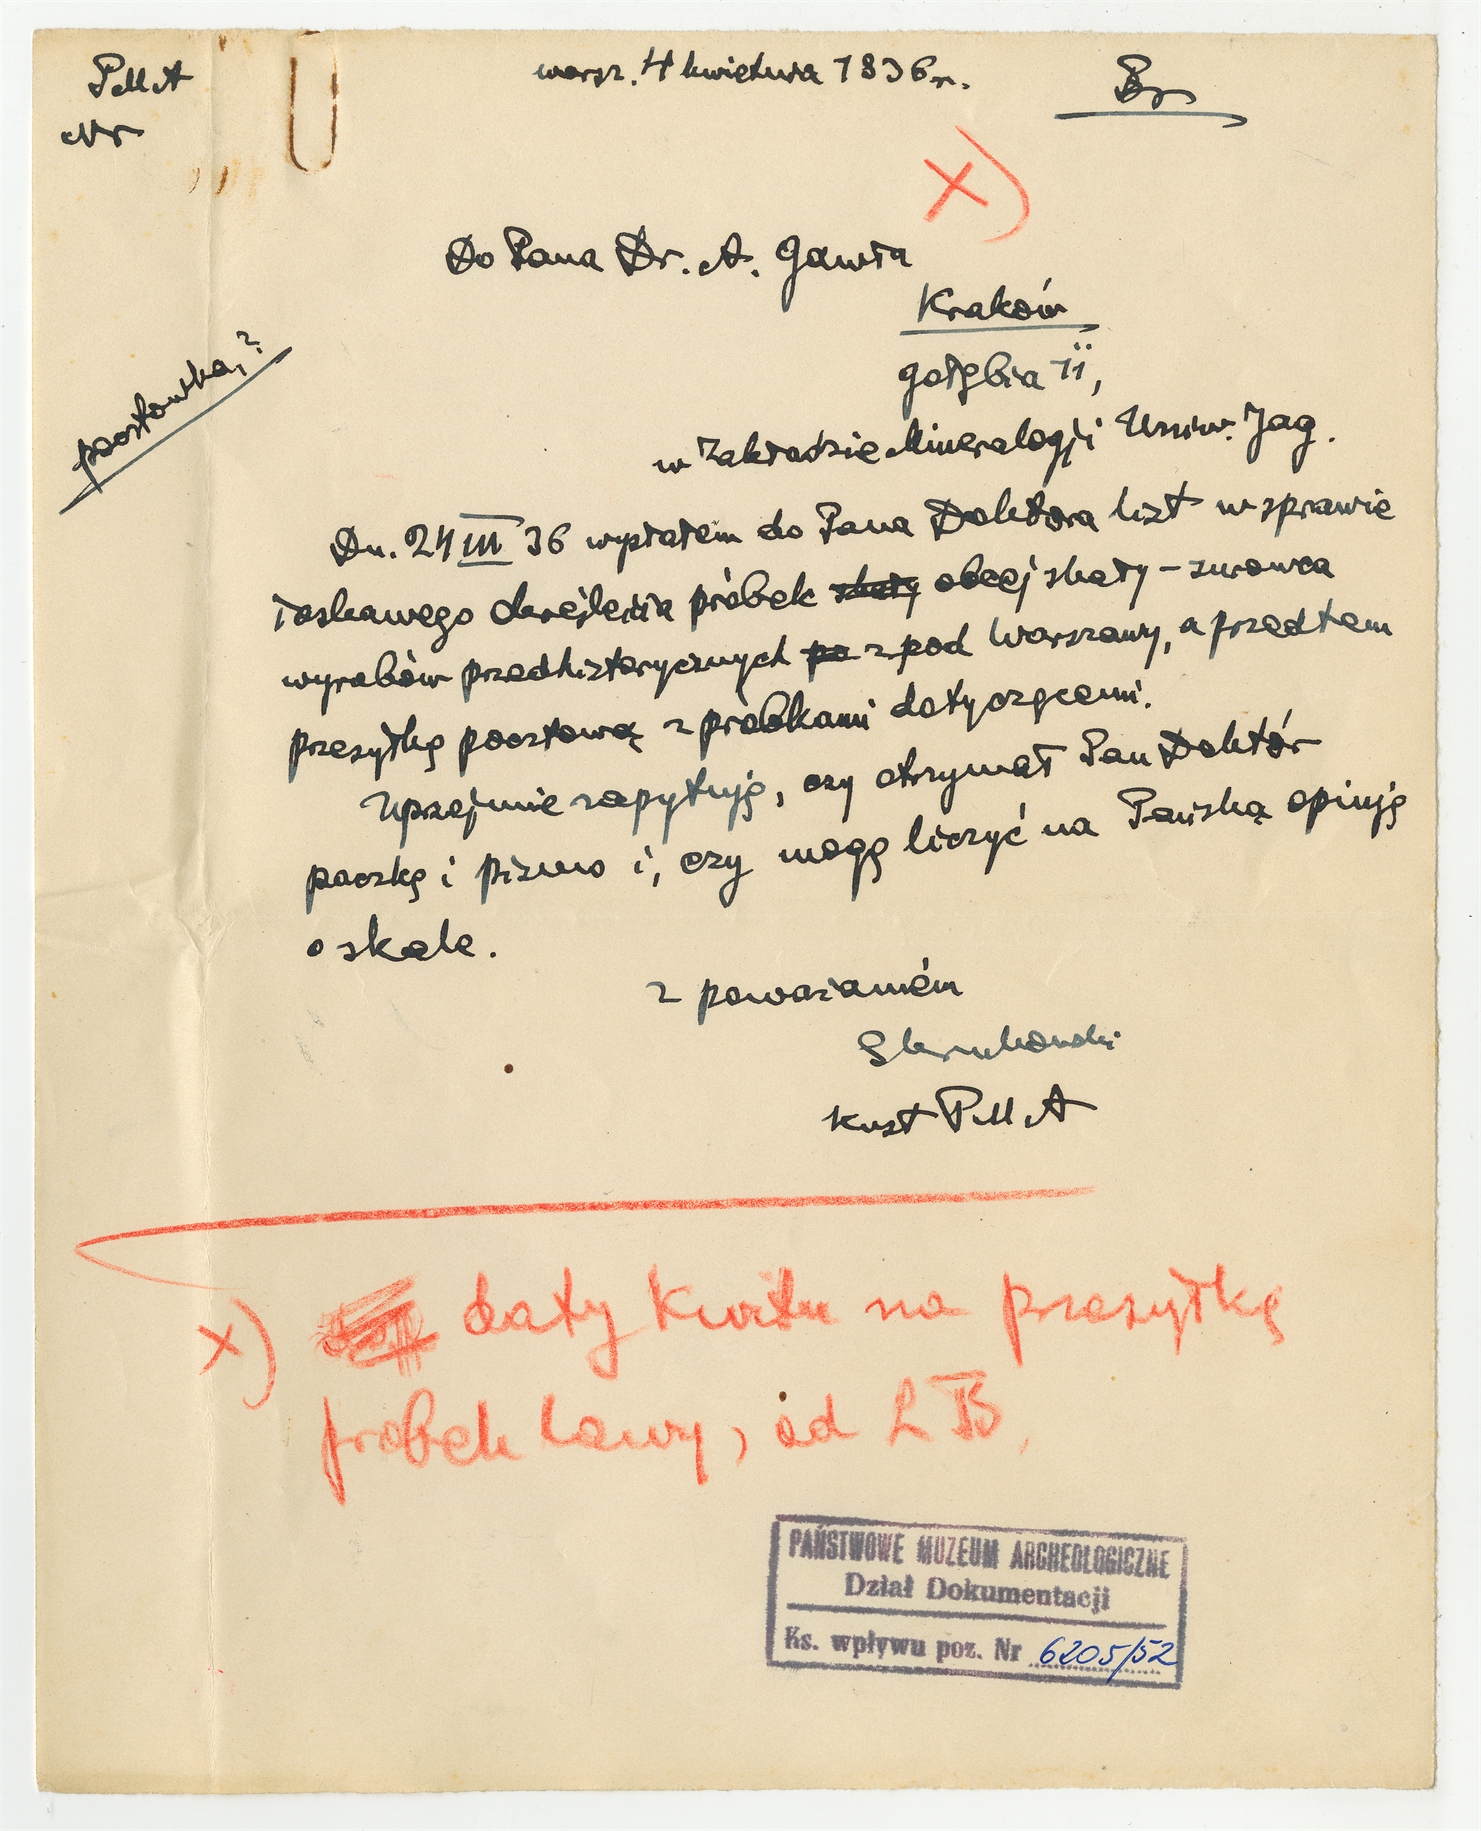 PMA
Nr
warsz. 4 kwietnia 1936 r.
Br
X)
Do Pana Dr. A. Gawła
Kraków
Gołębia 11,
w Zakładzie Mineralogji Uniw. Jag.
pocztówka,?
Dn. 24 III 36 wysłałem do Pana Doktora list w sprawie
łaskawego określenia próbek skały obcej skały – surowca
wyrobów przedhistorycznych po z pod Warszawy, a przedtem
przesyłkę pocztową z próbkami dotyczącemi.
Uprzejmie zapytuję, czy otrzymał Pan Doktór
paczkę i pismo i, czy mogę liczyć na Pańską opinję
o skale.
z poważaniem
Kust PMA
x) daty kwitu na przesyłkę
próbek lawy, od
PAŃSTWOWE MUZEUM ARCHEOLOGICZNE
Dział Dokumentacji
Ks. wpływu poz. Nr 6205/52